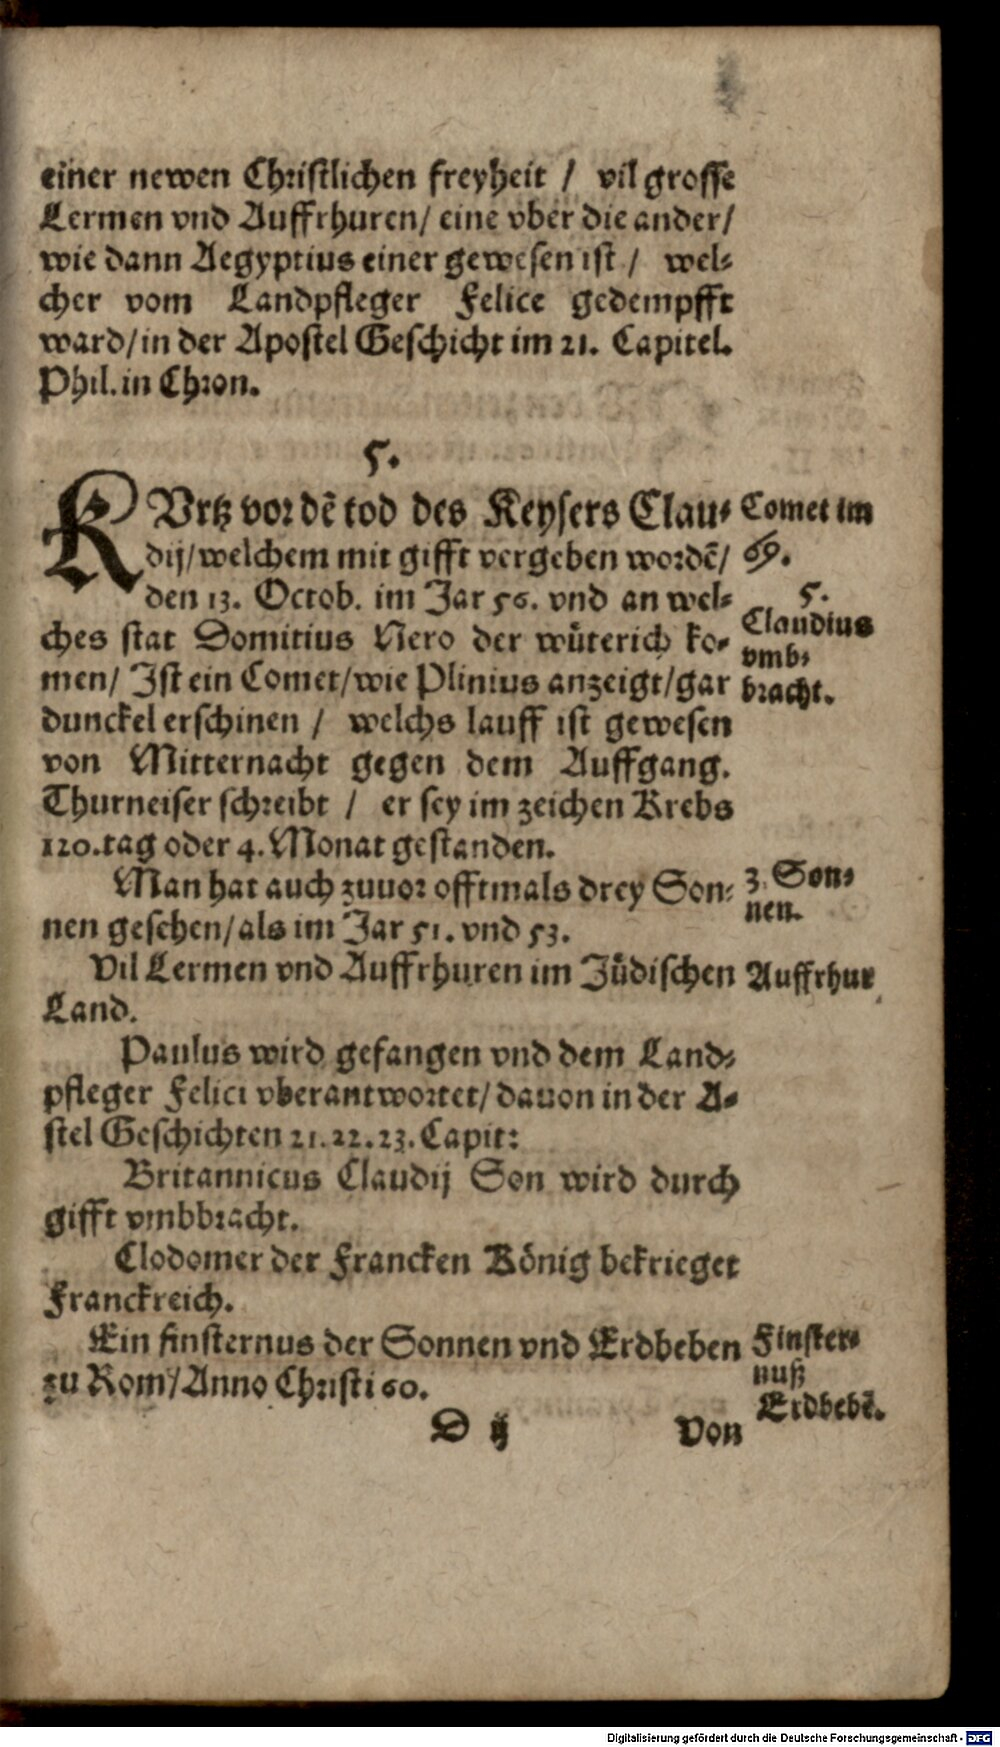 einer newen Christlichen freyheit / vil grosse
Lermen vnd Auffrhuren / eine vber die ander /
wie dann Aegyptius einer gewesen ist / wel-
cher vom Landpfleger Felice gedempfft
ward / in der Apostel Geschicht im 21. Capitel.
Phil. in Chron.
5.
KVrtz vor dẽ tod des Keysers Clau-
dij / welchem mit gifft vergeben wordẽ /
den 13. Octob. im Jar 56. vnd an wel-
ches stat Domitius Nero der wüterich ko-
men / Ist ein Comet / wie Plinius anzeigt / gar
dunckel erschinen / welchs lauff ist gewesen
von Mitternacht gegen dem Auffgang.
Thurneiser schreibt / er sey im zeichen Krebs
120. tag oder 4. Monat gestanden.
Comet im
69.
5.
Claudius
vmb-
bracht.
Man hat auch zuuor offtmals drey Son-
nen gesehen / als im Jar 51. vnd 53.
3. Son-
nen.
Vil Lermen vnd Auffrhuren im Jüdischen
Land.
Auffrhur
Paulus wird gefangen vnd dem Land-
pfleger Felici vberantwortet / dauon in der A-
stel Geschichten 21. 22. 23. Capit:
Britannicus Claudij Son wird durch
gifft vmbbracht.
Clodomer der Francken König bekrieget
Franckreich.
Ein finsternus der Sonnen vnd Erdbeben
zu Rom / Anno Christi 60.
Finster-
nuß
Erdbebẽ.
D ij
Von
Digitalisierung gefördert durch die Deutsche Forschungsgemeinschaft - DFG